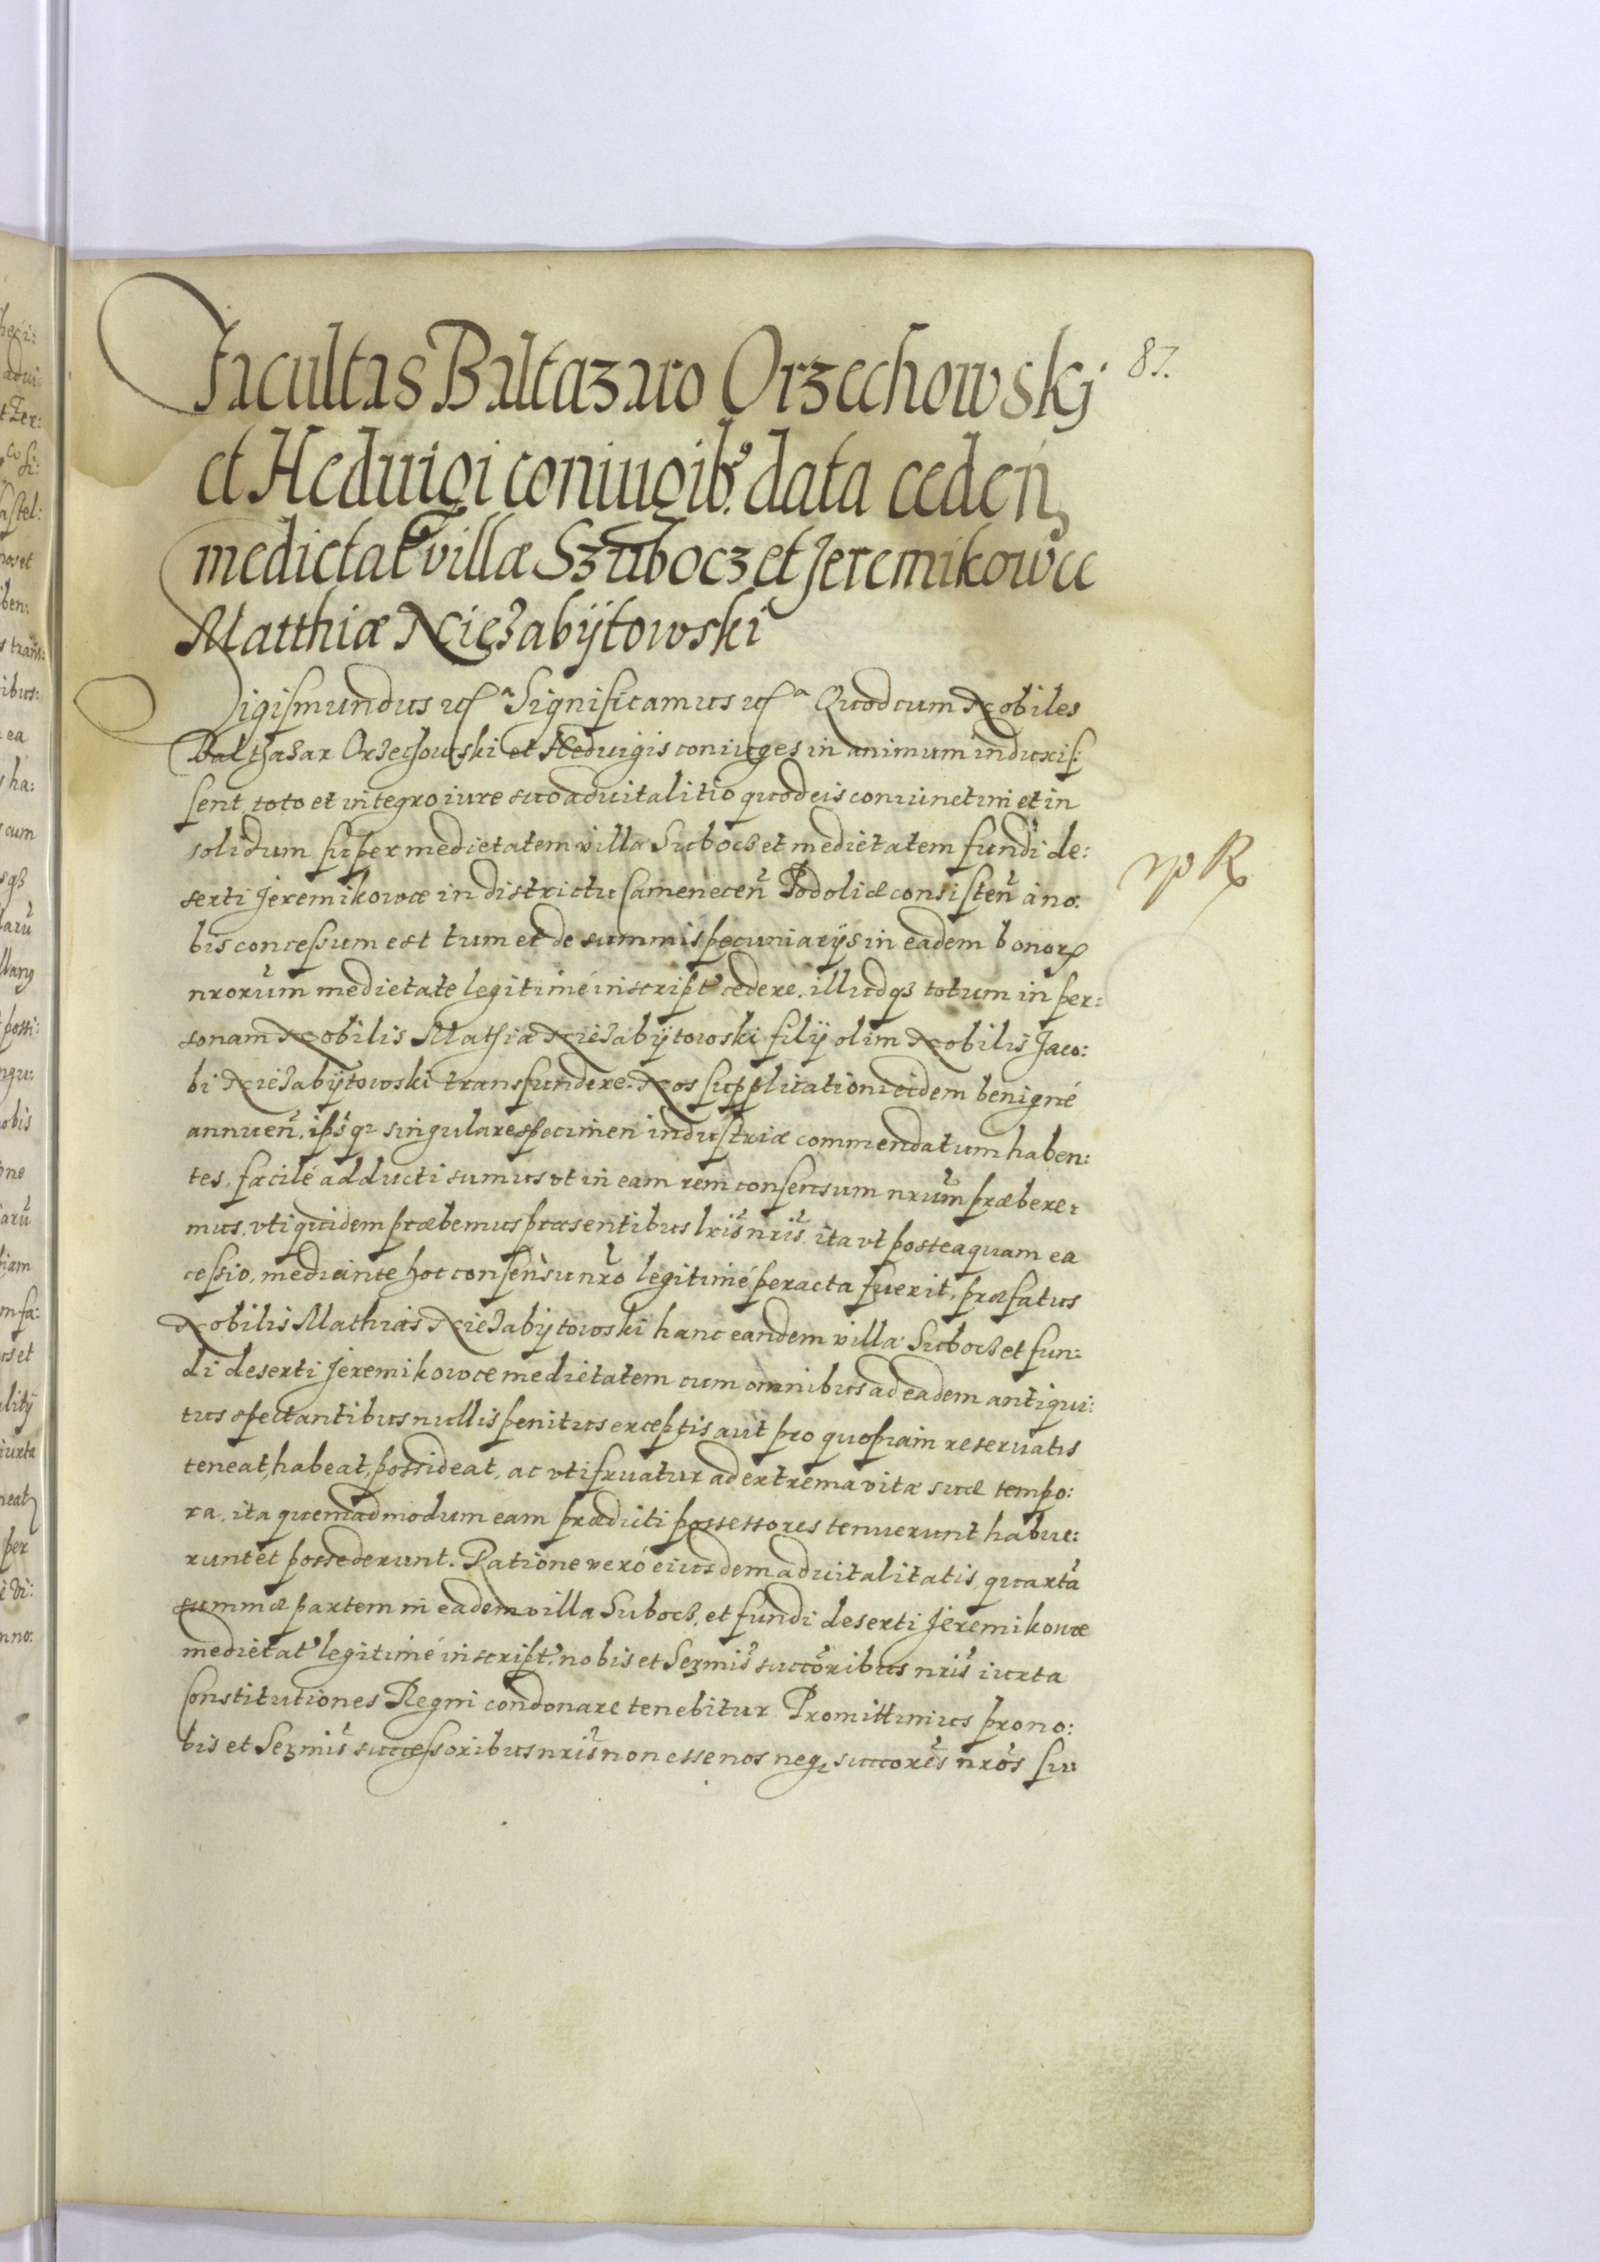 Facultas Baltazaro Orzechowskj
87.
et Hedvigi coniugib9 data ceden
medietat villæ Szubocz et Jeremikowce
Matthiæ Niezabÿtowski
Sigismundus Significamus Quod cum Nobiles
Balthazar Orzechowski et Hedvigis coniuges in animum induxis:
sent, toto et integro iure suo aduitalitio quod eis coniunctim et in
solidum super medietatem villæ Subocz et medietatem fundi de:
serti Jeremikowcæ in districtu Camenecen Podoliæ consisten a no:
bis concessum est tum et de summis pecuniarÿs in eadem bonor
nrorum medietate legitimè inscript cedere, illudqz totum in per:
sonam Nobilis Mathiæ Niezabÿtowski filÿ olim Nobilis Jaco:
bi Niezabÿtowski transfundere. Nos supplicationi eidem benignè
annuen, singulare specimen industriæ commendatum haben:
tes, facilè adducti sumus vt in eam rem consensum nrum præbere:
mus, vti quidem præbemus præsentibus lris nris, ita vt posteaquam ea
cessio, mediante hoc consensu nro legitimè peracta fuerit, præfatus
Nobilis Mathias Niezabÿtowski hanc eandem villæ Subocz et fun:
di deserti Jeremikowce medietatem cum omnibus ad eadem antiqui:
tus spectantibus nullis penitus exceptis aut pro quopiam reservatis
teneat, habeat, possideat, ac vtifruatur ad extrema vitæ suæ tempo:
ra, ita quemadmodum eam prædicti possessores tenuerunt habue:
runt et possederunt. Ratione verò eiusdem aduitalitatis, quartā
summæ partem in eadem villa Subocz, et fundi deserti Jeremikowce
medietat legitimè inscript, nobis et Sermis succoribus nris iuxta
Constitutiones Regni condonare tenebitur Promittimus pro no:
bis et Sermis successoribus nris non esse nos neq succores nros su: